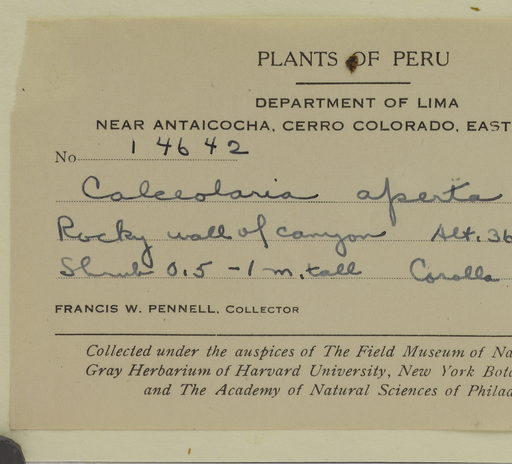 PLANTS OF PERU
DEPARTMENT OF LIMA
NEAR ANTAICOCHA, CERRO COLORADO, EAST
No 14642
Calceolaria aperta
Rocky wall of canyon Alt. 36
Shrub 0.5 - 1 m. tall Corolla
FRANCIS W. PENNELL, COLLECTOR
Collected under the auspices of The Field Museum of Na
Gray Herbarium of Harvard University, New York Bot
and The Academy of Natural Sciences of Philad